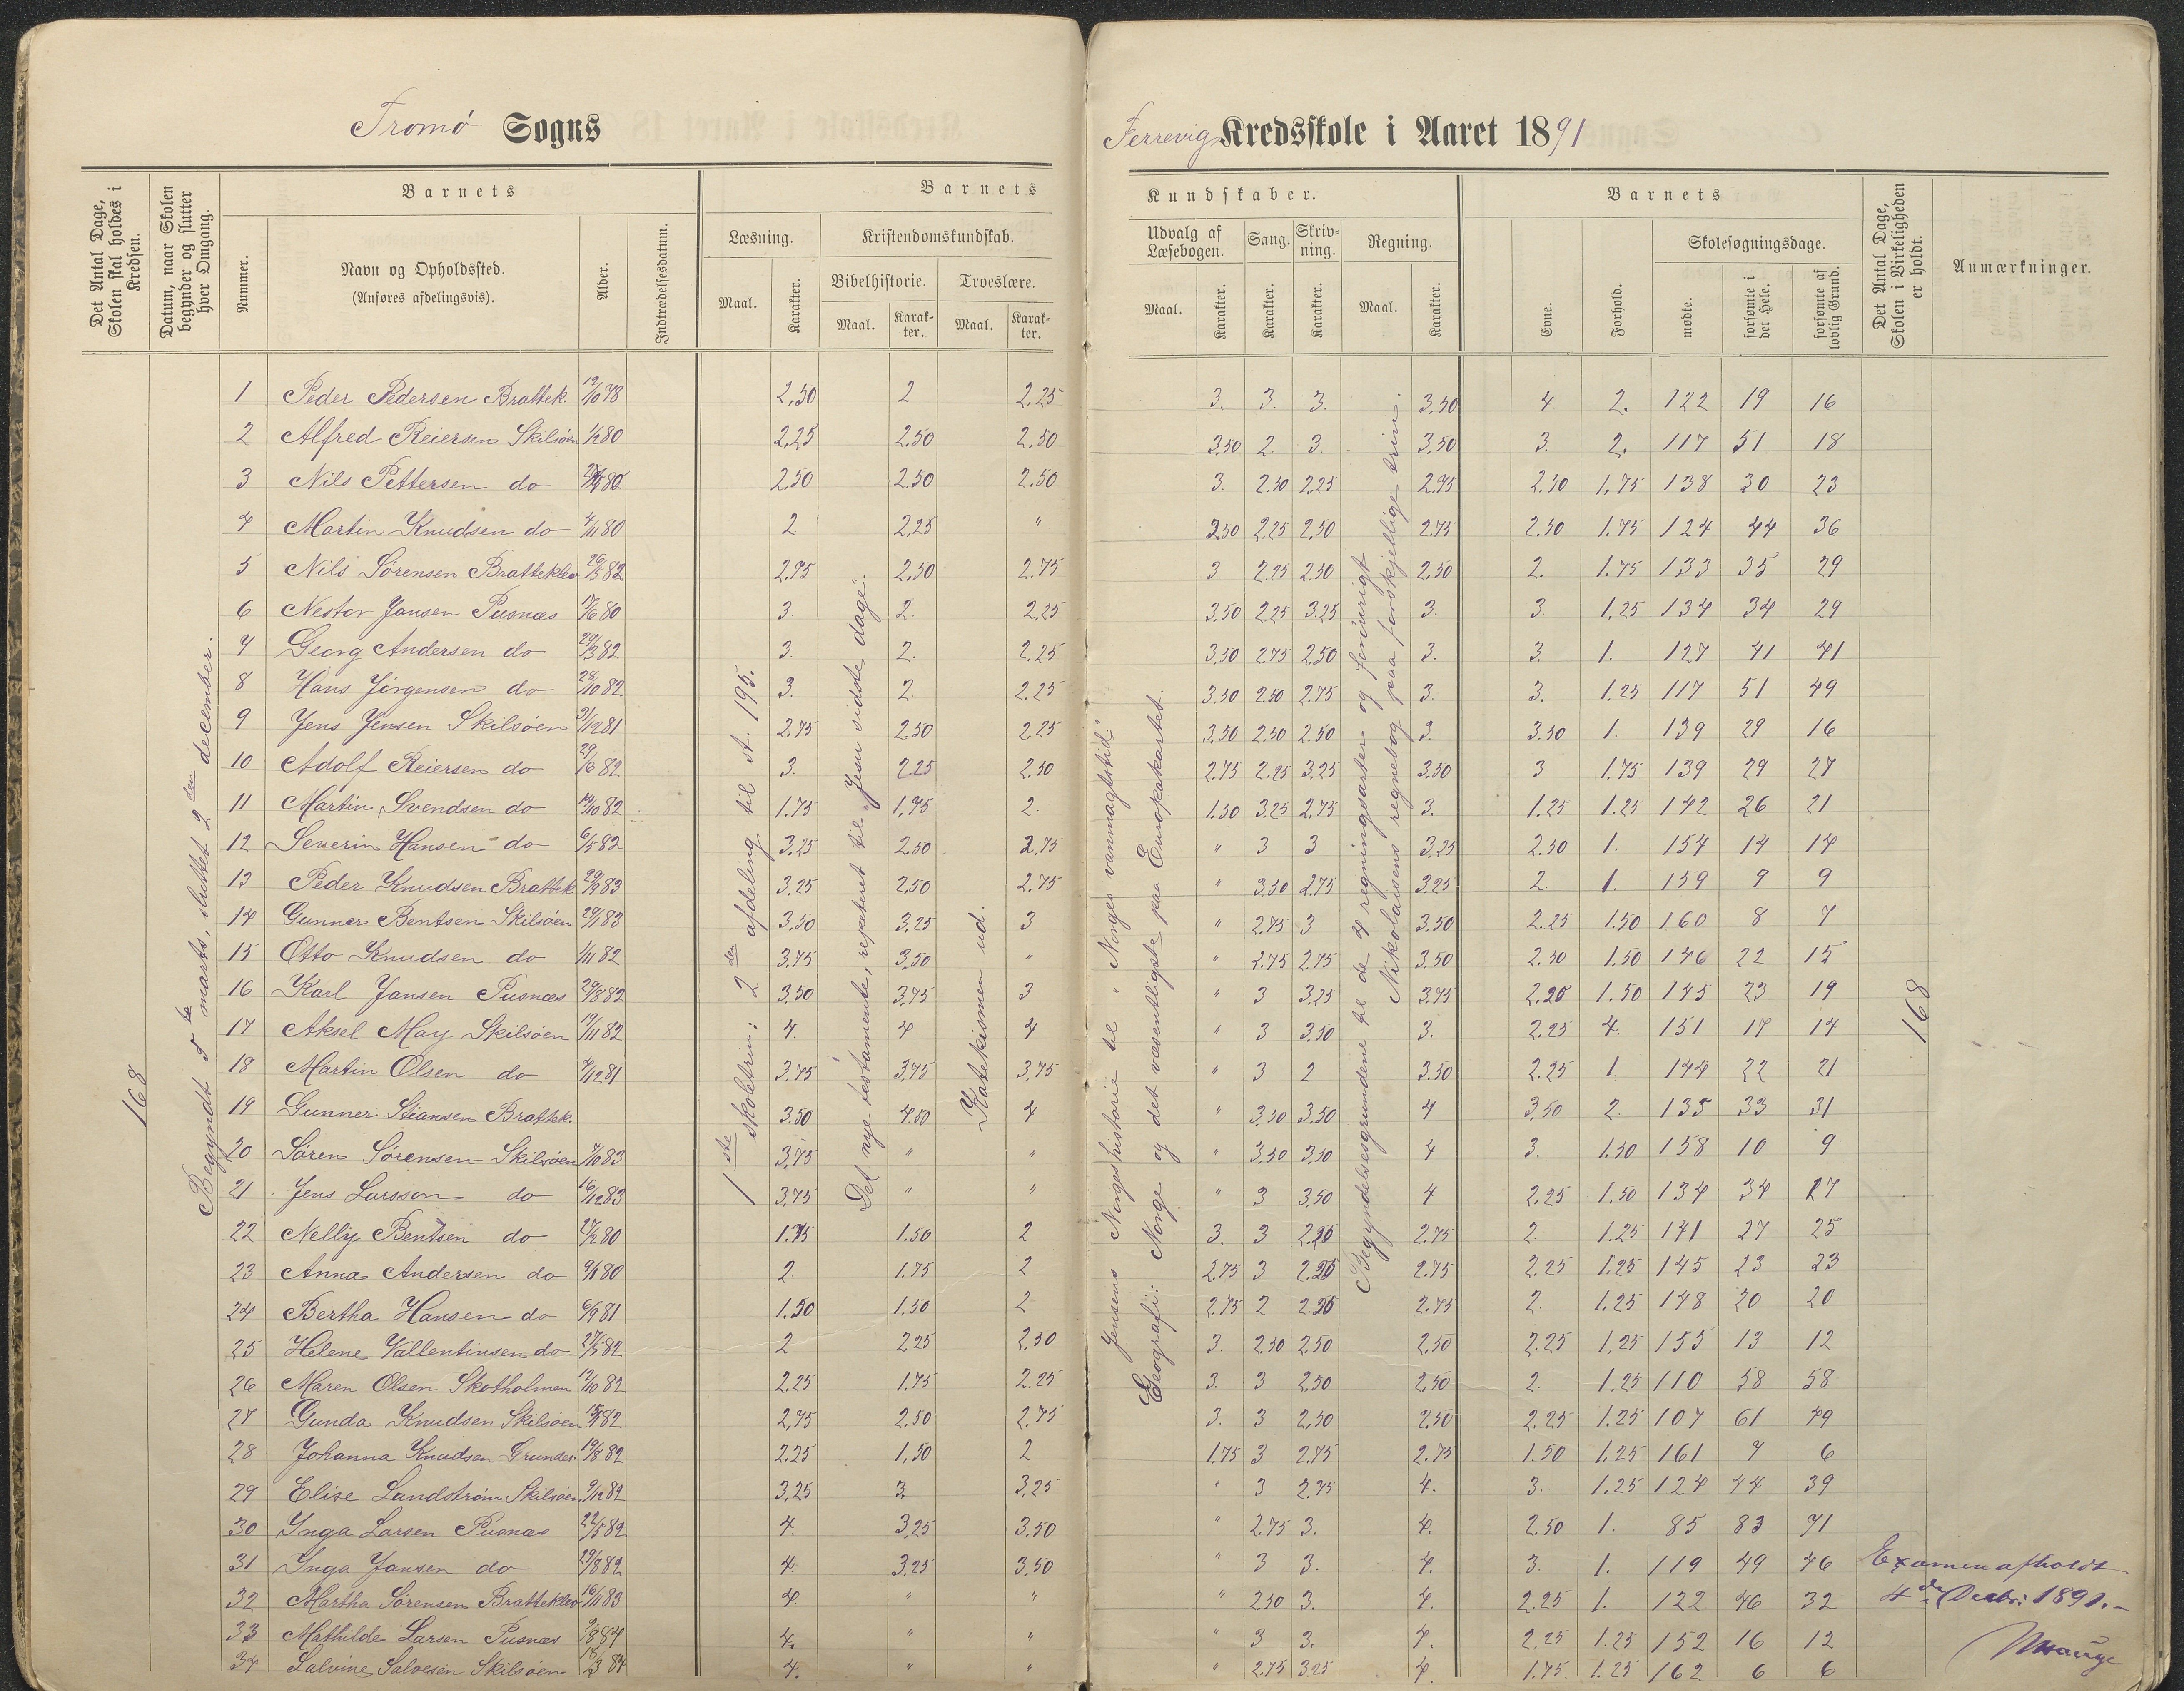 Tromø Sogns
Det Antal Dage, Skolen skal holdes i Kredsen.
Datum, naar Skolen begynder og slutter hver Omgang.
Barnets
Nummer.
Navn og Opholdssted. (Anføres afdelingsvis).
Alder.
Indtrædelsesdatum.
Barnets
Læsning.
Maal.
Karakter.
Kristendomskundskab.
Bibelhistorie.
Maal.
Karakter.
Troeslære.
Maal.
Karakter.
168
Begyndt 5te marts, sluttet 2den december.
1ste skoletrin: 2den afdeling til st. 195.
Det nye testamente, repeteret til "Jesu sidste dage".
Katekismen ud.
1 Peder Pedersen Brattek. 12/10 78 2,50 2 2.25
2 Alfred Reiersen Skilsøen 80 2,25 2.50 2.50
3 Nils Pettersen do 80 2.50 2.50 2.50
4 Martin Knudsen do 4/11 80 2 2,25 "
5 Nils Sørensen Bratteklev 26/5 82 2.75 2,50 2.75
6 Nestor Jansen Pusnæs 17/6 80 3. 2. 2,25
7 Georg Andersen do 29/3 82 3. 2. 2.25
8 Hans Jørgensen do 28/10 82 3. 2. 2.25
9 Jens Jensen Skilsøen 31/12 81 2.75 2,50 2.25
10 Adolf Reiersen do 29/6 82 3. 2.25 2.50
11 Martin Svendsen do 14/10 82 1.75 1,75 2.
12 Severin Hansen do 6/5 82 3,25 2.50 2.75
13 Peder Knudsen Brattek 29/9 83 3.25 2,50 2.75
14 Gunner Bentsen Skilsøen 29/1 83 3.50 3.25 3
15 Otto Knudsen do 1/11 82 3.75 3,50 "
16 Karl Jansen Pusnæs 29/8 82 3,50 3,75 3
17 Aksel May Skilsøen 19/11 82 4. 4 4
18 Martin Olsen do 4/12 81 3.75 3.75 3,75
19 Gunner Stiansen Brattek. 3.50 4.50 4
20 Søren Sørensen Skilsøen 4/10 83 3,75 " "
21 Jens Larsson do 16/12 83 3,75 " "
22 Nelly Bentsen do 80 1.75 1.50 2
23 Anna Andersen do 80 2. 1.75 2
24 Bertha Hansen do 6/9 81 1.50 1.50 2
25 Helene Vallentinsen do 27/5 82 2 2.25 2,50
26 Maren Olsen Skotholmen 12/10 82 2.25 1.75 2.25
27 Gunda Knudsen Skilsøen 82 2,75 2,50 2,75
28 Johanna Knudsen Grundes. 19/8 82 2.25 1,50 2
29 Elise Landstrøm Skilsøen 9/12 82 3,25 3. 3,25
30 Inga Larsen Pusnæs 22/5 82 4. 3,25 3.50
31 Inga Jansen do 29/8 82 4. 3,25 3,50
32 Martha Sørensen Bratteklev 16/11 83 4. " "
33 Mathilde Larsen Pusnæs 9/8 84 4. " "
34 Salvine Salvesen Skilsøen 18/3 84 4. " "
Ferrevig Kredsskole i Aaret 1891
Kundskaber.
Udvalg af Læsebogen.
Maal.
Karakter.
Sang.
Karakter.
Skrivning.
Karakter.
Regning.
Maal.
Karakter.
Barnets
Evne.
Forhold.
Skolesøgningsdage.
mødte.
forsømte i det Hele.
forsømte af lovlig Grund.
Det Antal Dage, Skolen i Virkeligheden er holdt.
Anmærkninger.
Jensens Norges historie til "Norges vanmagtstid".
Geografi: Norge og det væsentligste paa Europakartet.
Begyndelsesgrundene til de 4 regningsarter og forøvrigt
Nikolaisens regnebog paa forskjellige trin.
3. 3. 3. 3,50 4 2. 122 19 16
3,50 2 3. 3,50 3. 2. 117 51 18
3. 2.50 2,25 2.75 2.50 1,75 138 30 23
2.50 2.25 2,50 2.75 2.50 1.75 124 44 36
3 2.25 2.50 2,50 2. 1.75 133 35 29
3,50 2.25 3.25 3. 3. 1,25 134 34 29
3,50 2.75 2,50 3. 3. 1. 127 41 41
3.50 2.50 2.75 3. 3. 1.25 117 51 49
3.50 2.50 2.50 3. 3.50 1. 139 29 16
2.75 2.25 3.25 3,50 3 1.75 139 29 27
1.50 3.25 2,75 3. 1.25 1.25 142 26 21
" 3 3 3,25 2.50 1. 154 14 14
" 3,50 2.75 3.25 2. 1. 159 9 9
" 2.75 3 3.50 2.25 1.50 160 8 7
" 2.75 2.75 3.50 2.50 1.50 146 22 15
" 3 3.25 3.75 2.25 1.50 145 23 19
" 3 3,50 3. 2.25 4. 151 17 14
" 3 2 3.50 2.25 1. 144 22 21
" 3,50 3.50 4 3,50 2. 135 33 31
" 3,50 3,50 4 3. 1.50 158 10 9
" 3 3,50 4 2.25 1.50 134 34 27
3. 3 2.25 2.75 2. 1.25 141 27 25
2.75 3 2.25 2.75 2.25 1.25 145 23 23
2.75 2 2.25 2.75 2. 1.25 148 20 20
3. 2.50 2,50 2,50 2.25 1,25 155 13 12
3. 3 2,50 2,50 2. 1,25 110 58 58
3. 3 2,50 2,50 2.25 1.25 107 61 49
1.75 3 2.75 2.75 1.50 1.25 161 7 6
" 3 2.75 4. 3. 1.25 124 44 39
" 2.75 3. 4. 2.50 1. 85 83 71
" 3 3. 4. 3. 1. 119 49 46
" 2.50 3. 4. 2.25 1. 122 46 32
" 3 3. 4. 2.25 1.25 152 16 12
" 2.75 3.25 4. 1.75 1.25 162 6 6
168
Examen afholdt
4de Decbr: 1891.-